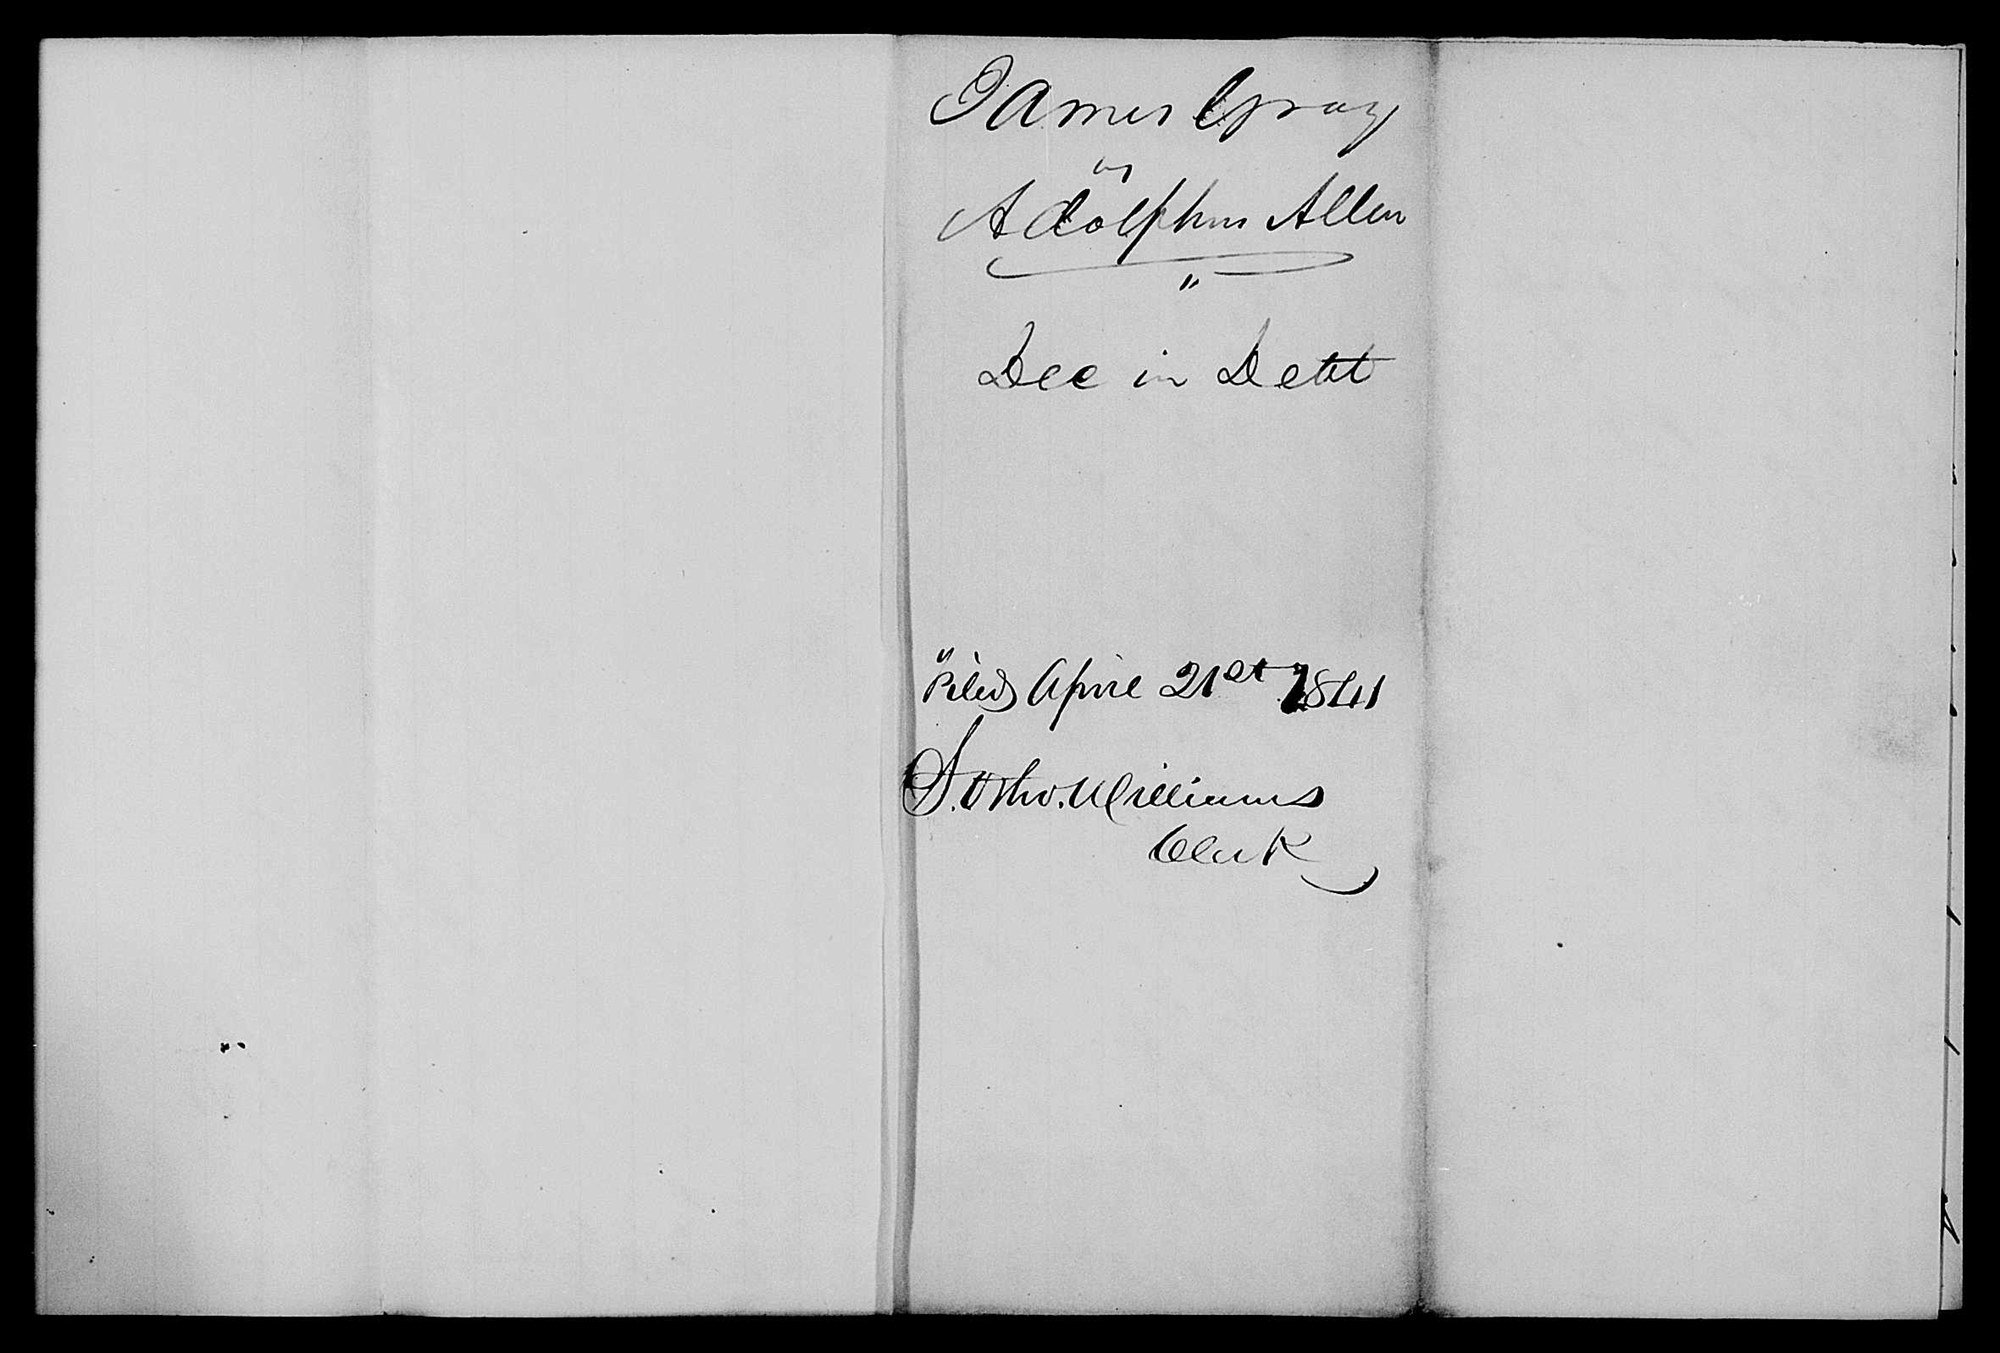 James Gray
vs
Adolphus Allen
"
Dec in Debt
Filed April 21st 1841
S. Otho. Williams
Clerk